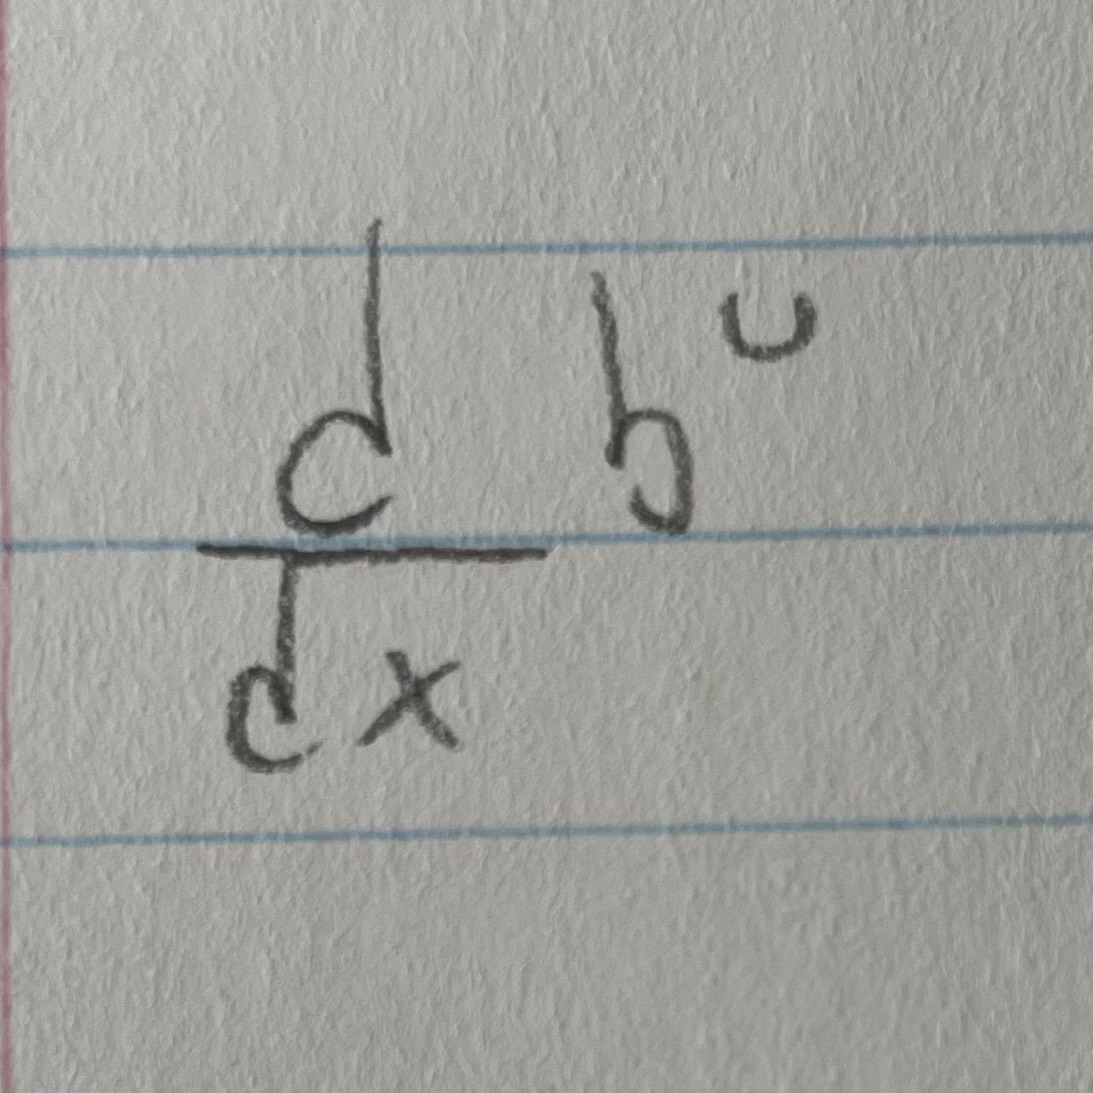 d/dx b^u